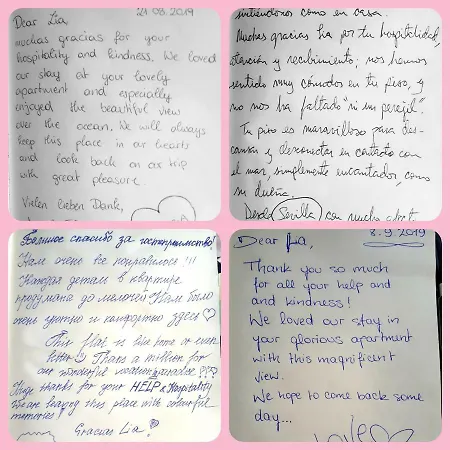 21.08.2019
Dear Lia,
muchas gracias for your
hospitality and kindness. We loved
our stay at your lovely
apartment and especially
enjoyed the beautiful view
over the ocean. We will always
keep this place in our hearts
and look back on our trip
with great pleasure.
Vielen lieben Dank,
sintiéndonos como en casa.
Muchas gracias Lia por tu hospitalidad,
atención y recibimiento; nos hemos
sentido muy cómodos en tu piso, y
no nos ha faltado "ni un perejil".
Tu piso es maravilloso para des-
cansar y desconectar en contacto con
el mar, simplemente encantador, como
su dueña.
Desde Sevilla con mucho afecto
Большое спасибо за гостеприимство!
Нам очень все понравилось!!!
Каждая деталь в квартире
продумана до мелочей! Нам было
очень уютно и комфортно здесь ♡
This flat is like home or even
better! Thanks a million for
our wonderful vacation paradise!!!
Huge thanks for your HELP & Hospitality
We are leaving this place with colourful
memories!
Gracias Lia!
8.9.2019
Dear Lia,
Thank you so much
for all your help and
and kindness!
We loved our stay in
your glorious apartment
with this magnificent
view.
We hope to come back some
day...
Love